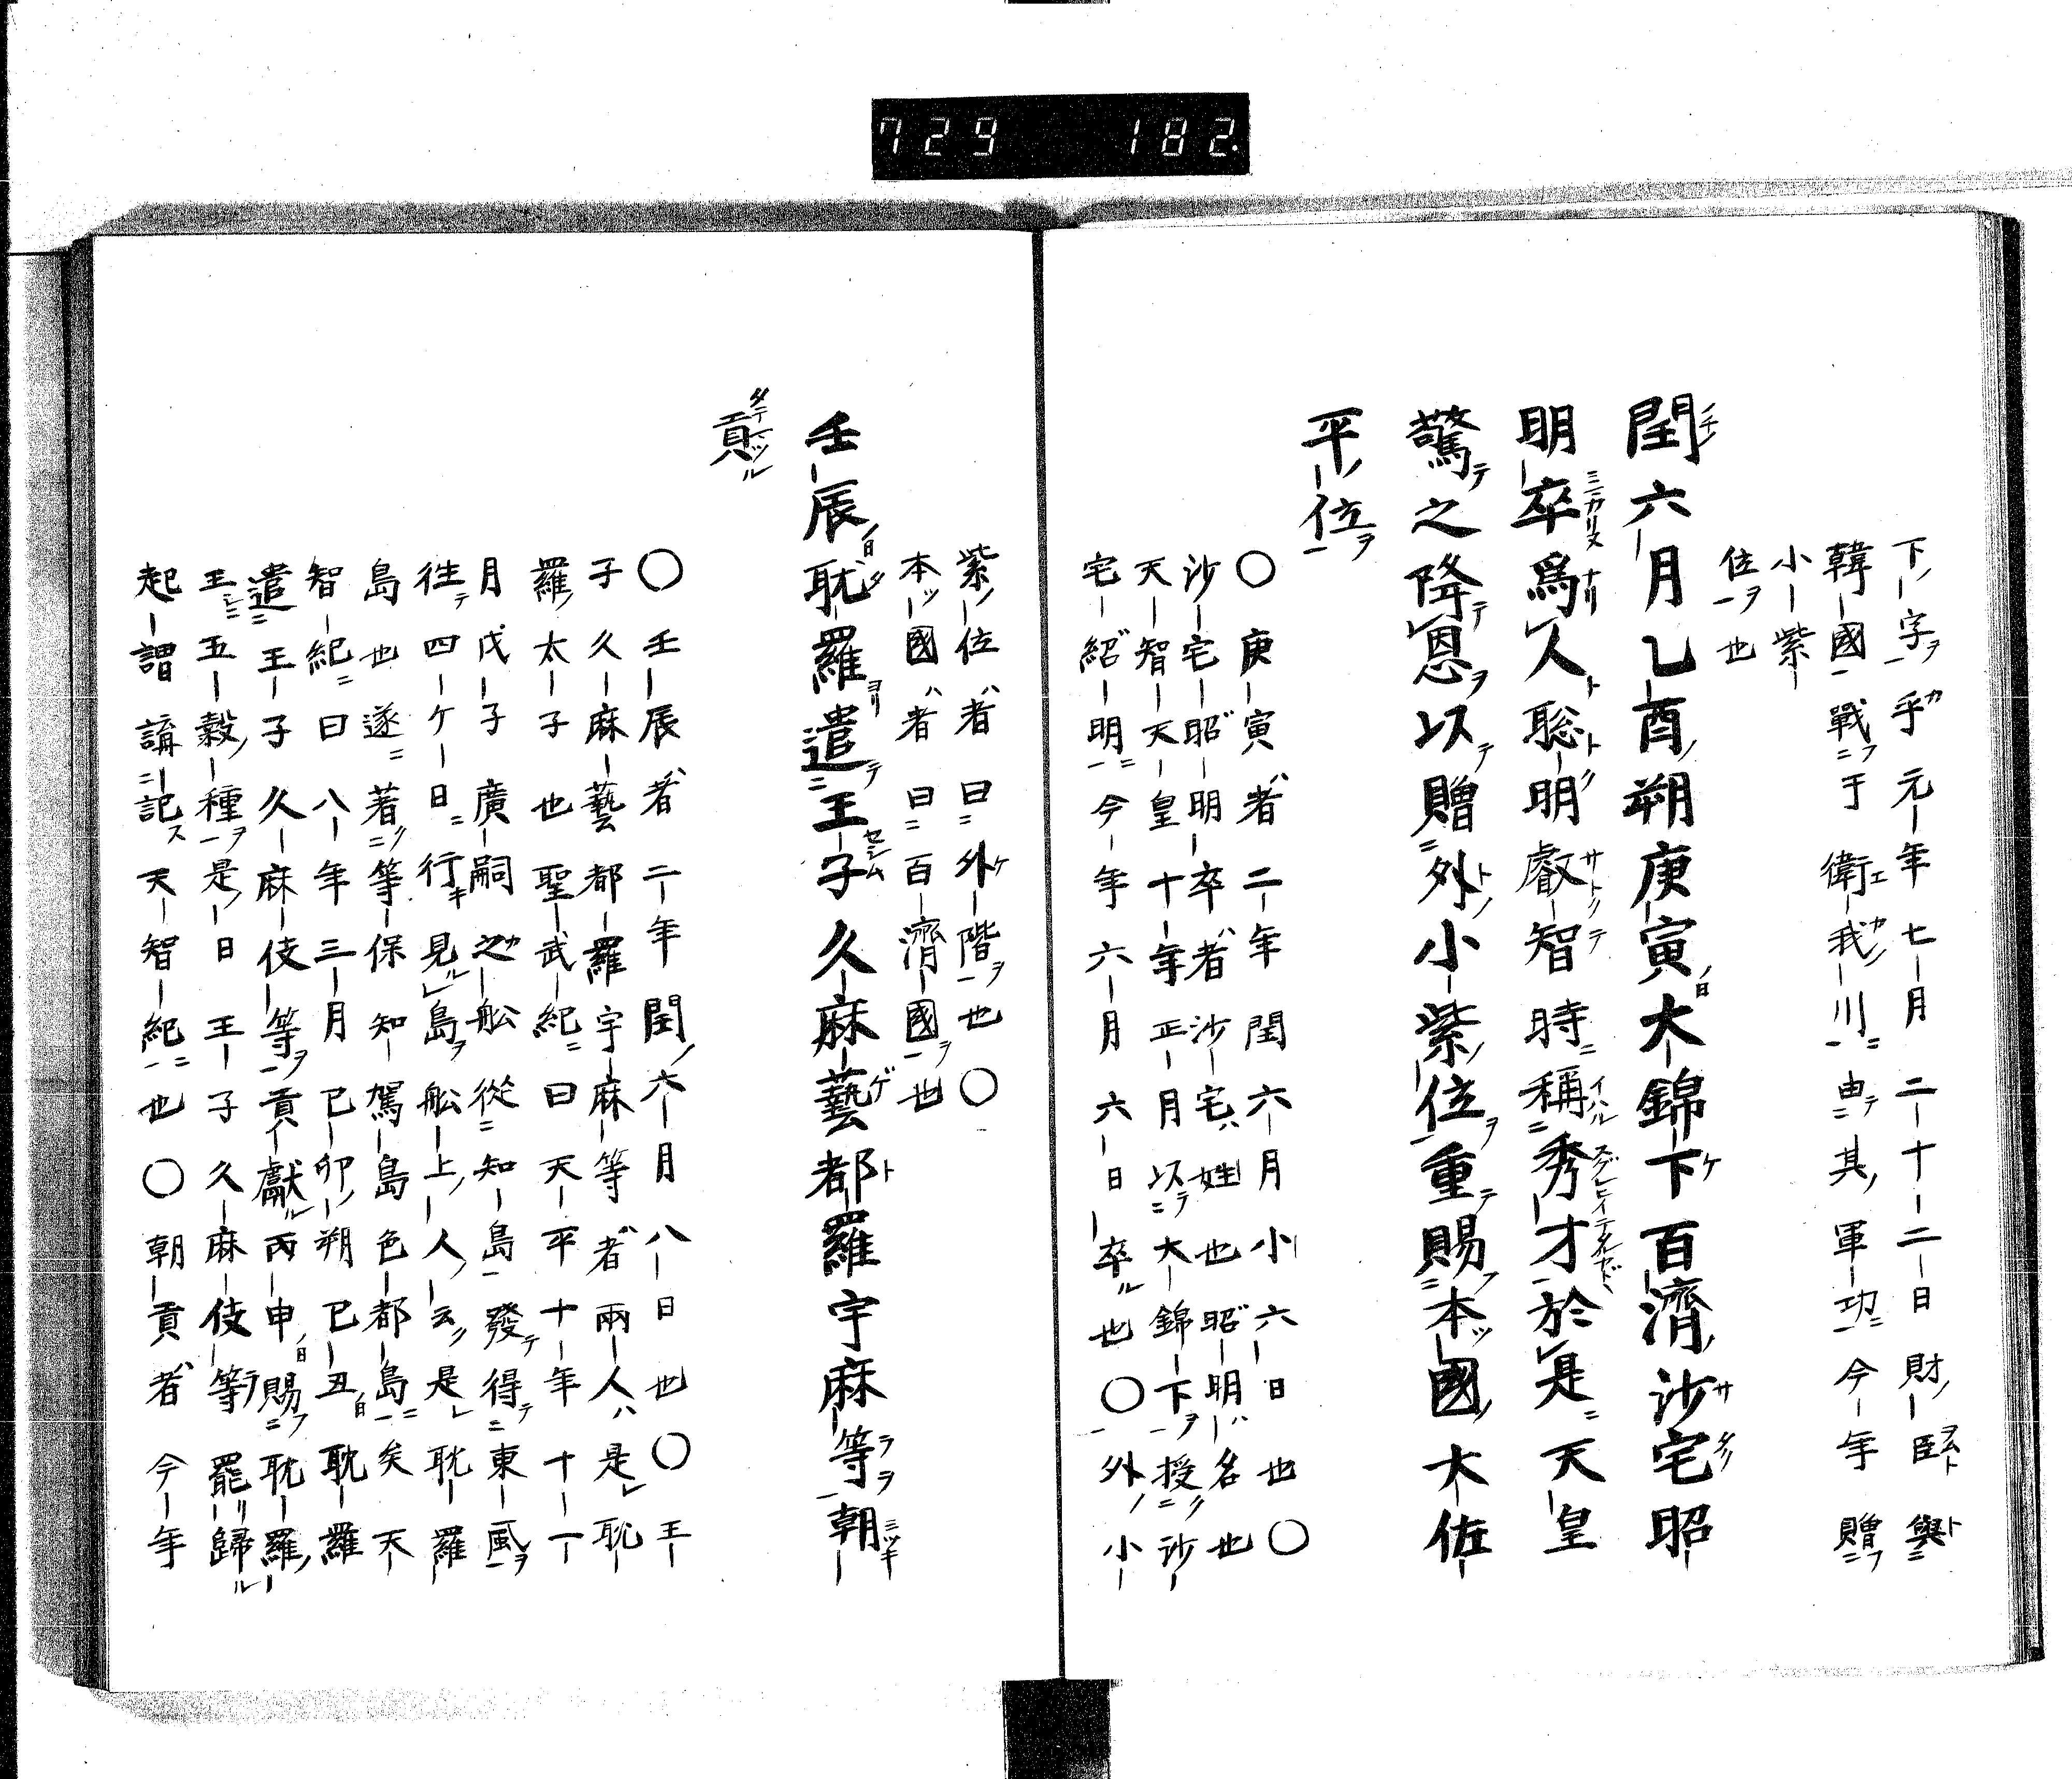 729 182
下字乎元年七月二十二日財臣與
韓國戰于衛我川由其軍功今年贈
小紫
位也
閏六月乙酉朔庚寅大錦下百濟沙宅昭
明卒爲人聡明叡智時稱秀才於是天皇
驚之降恩以贈外小紫位重賜本國大佐
平位
〇庚寅者二年閏六月小六日也〇
沙宅昭明卒者沙宅姓也昭明名也
天智天皇十年正月以大錦下授沙
宅紹明今年六月六日卒也〇外小
紫位者曰外階也〇
本國者曰百濟國也
壬辰耽羅遣王子久麻藝都羅宇麻等朝
貢
〇壬辰者二年閏六月八日也〇王
子久麻藝都羅宇麻等者兩人是耽
羅太子也聖武紀曰天平十年十一
月戊子廣嗣之舩從知島發得東風
往四ケ日行見島舩上人云是耽羅
島也遂著等保知駕島色都島矣天
智紀曰八年三月己卯朔己丑耽羅
遣王子久麻伎等貢獻丙申賜耽羅
王五穀種是日王子久麻伎等罷歸
起謂講記天智紀也〇朝貢者今年